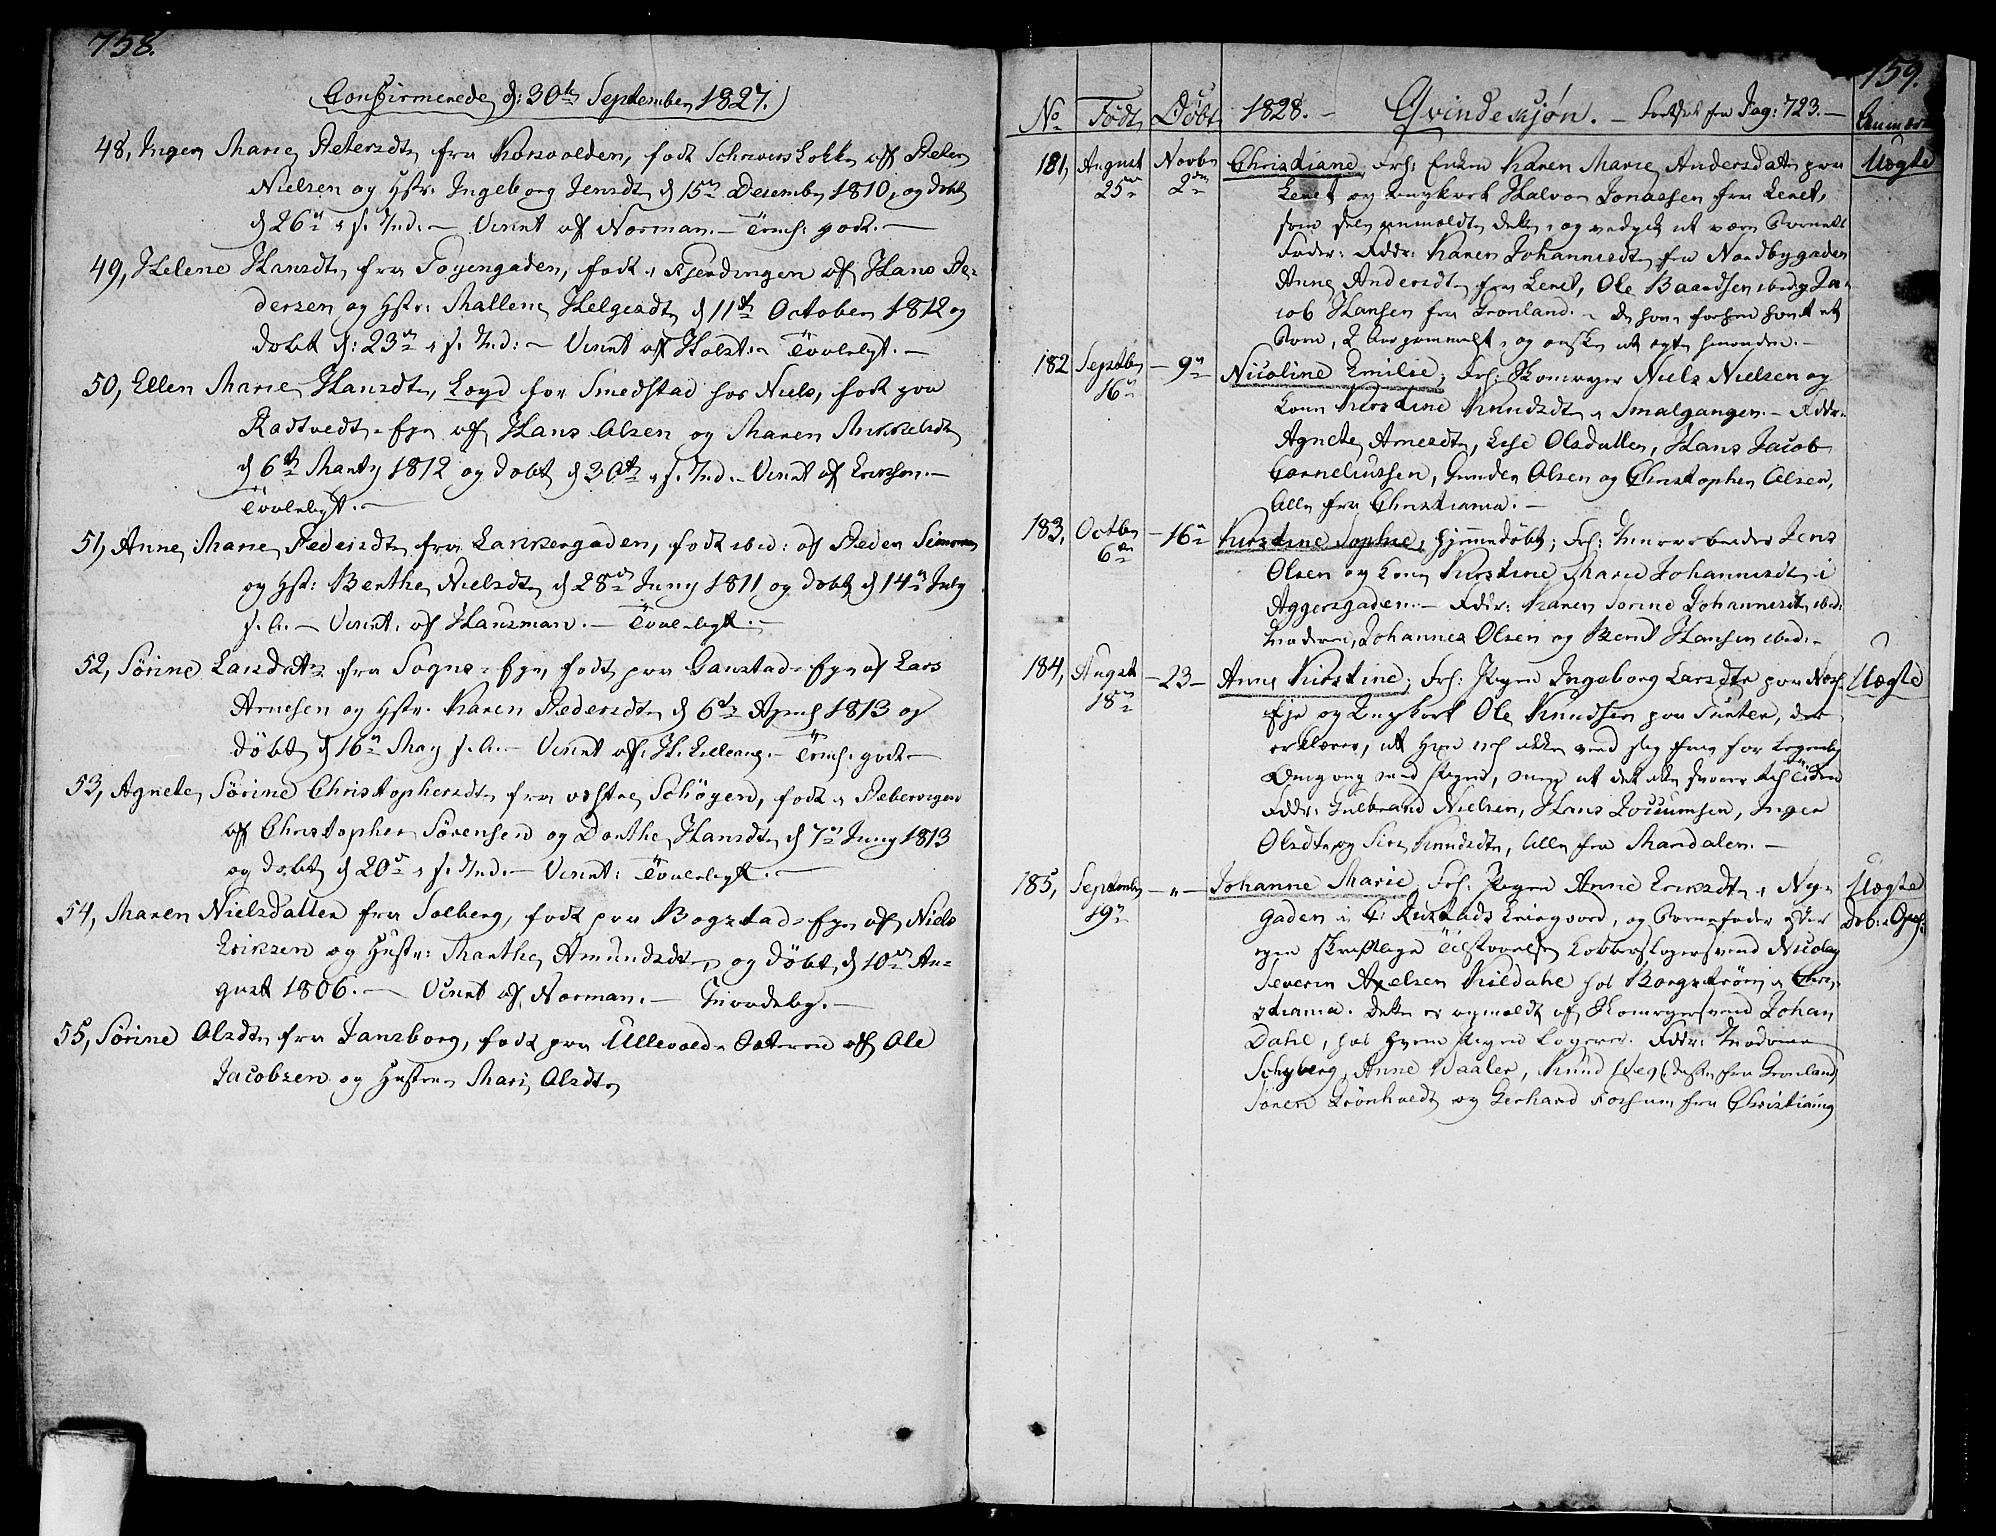 758.
Confirmerede d: 30te September 1827.
48, Inger Marie Petersdtr fra Korsvolden, født Schrivers Løkke af Peter
Nielsen og Hstr: Ingeborg Jensdtr d 15de Decembr 1810, og døbt
d 26de s. Md. – Vaccint af Norman. –
49, Helene Hansdtr fra Tøyengaden, født i Fjerdingen af Hans Pe-
dersen og Hstr: Mallene Helgesdtr d 11te October 1812 og
døbt d: 23de s. Md: – Vaccint af Holst. –
50, Ellen Marie Hansdtr, for Smedstad hos Niels, født paa
Rødtvedt-Eje af Hans Olsen og Maren Mikkelsdtr
d 6te Marty 1812 og døbt d 30te s. Md. – Vaccint af Erichsen. –
51, Anne Marie Pedersdtr fra Lakkergaden, født ibid: af Peder Simonsen
og Hstr: Berthe Nielsdtr d 28de Juny 1811 og døbt d 14de July
s. A. – Vaccint. af Hansman. –
52, Sørine Larsdatr fra Sogns-Eje, født paa Gaustad-Eje af Lars
Arnesen og Hstr. Karen Pedersdtr d 6te April 1813 og
døbt d 16de May s. A. – Vaccint af
53, Agnete Sørine Christophersdtr fra vestre Schøyen, født i Pebervigen
af Christopher Sørensen og Dorthe Hansdtr d 7de Juny 1813
og døbt d 20de s. Md. – Vaccint:
54, Maren Nielsdatter fra Solberg, født paa Bogstad-Eje af Niels
Eriksen og Hustr: Marthe Amundsdtr, og døbt d 10de Au-
gust 1806. – Vaccint af Norman. –
55, Sørine Olsdtr fra Jansborg, født paa Ullevold af Ole
Jacobsen og Hustru Mari Olsdtr
759.
No Født Døbt 1828. – Qvindekjøn. – Fortsat fra Pag: 723. –
181, August 25de Novbr 2den Christiane, Frs: Enken Karen Marie Andersdatter paa Uægte
Leret og Ungkarl Halvor Jonassen fra Leret,
som selv anmeldte dette, og vedgik at være Barnets
Fader: Fddr: Karen Johannesdtr fra Nordbygaden
Anne Andersdtr fra Leret, Ole Baardsen ibid og Ja-
cob Hansen fra Grønland. – De have forhen havt et
Barn, 2 Aar gammelt, og ønske at
182 Septbr 16de – 9de Nicoline Emilie, Frs: Skomager Niels Nielsen og
Kone Kirstine Knudsdtr i Smalgangen. – Fddr:
Agnete Arnesdtr, Lise Olsdatter, Hans Jacob
Corneliussen, Gunder Olsen og Christopher Olsen,
Alle fra Christiania. –
183, Octbr 6te – 16de Kirstine Sophie, hjemmedøbt; Frs: Jens
Olsen og Kone Kirstine Marie Johannesdtr i
Aggersgaden. – Fddr: Karen Sørine Johannesdtr ibid:
Johannes Olsen og Bernt Hansen ibid: –
184, Augst 18de – 23 – Anne Kirstine; Frs: Pigen Ingeborg Larsdtr paa Uægte
Eje og Ungkarl Ole Knudsen paa
erklærer, at
Omgang med Pigen, men at det ikke svarer til Tiden
Fddr: Gulbrand Nielsen, Hans Inger
Olsdtr og Siri Knudsdtr, Alle fra Mardalen. –
185, September 19de – " – Johanne Marie, Frs: Pigen Anne Eriksdtr i Nye- Uægte
gaden i og Barnefader efter
egen skriftlige Tilstaaelse Kobberslagersvend Nicolay
Severin Axelsen Kieldahl hos Borgstrøm i Chri-
stiania. Dette er anmeldt af Skomagersvend Johan
Dahl, hos hvem Pigen logerer. Fddr: Madame
Schyberg, Anne Vaaler, Knud
Søren Grønhvedt og Gerhard Forsum fra Christiania